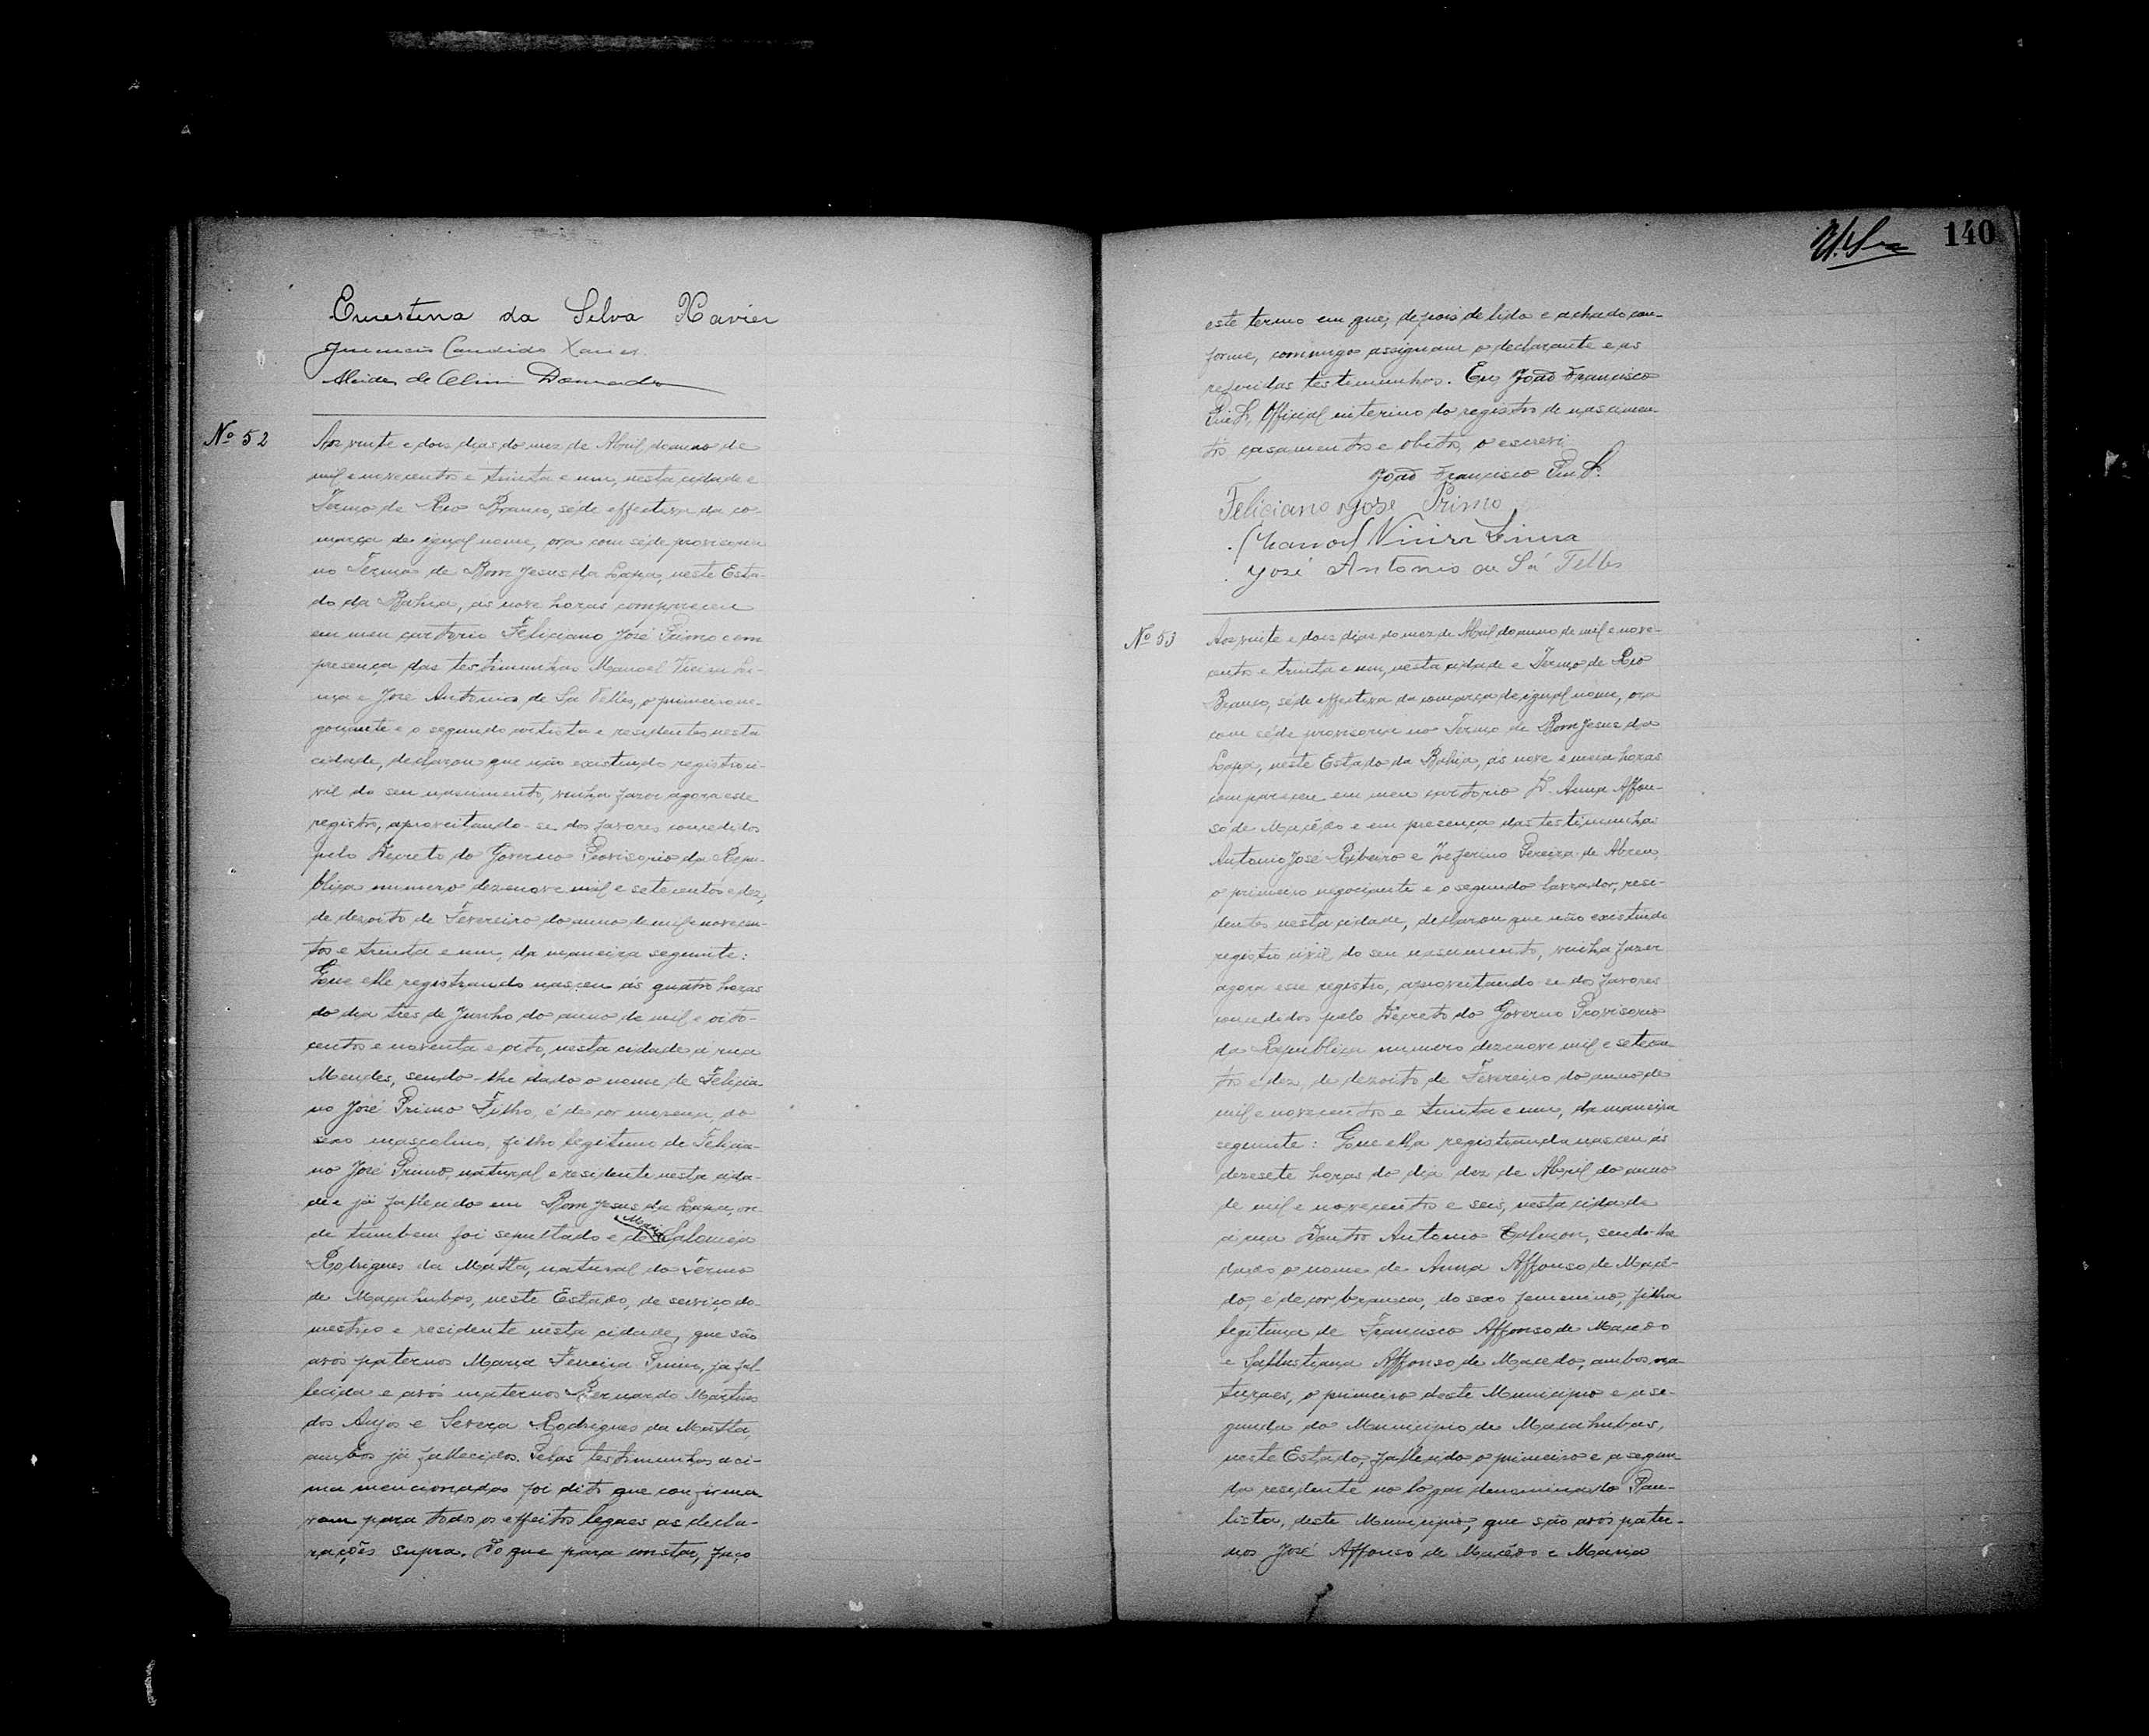 Ernestina da Silva Xavier
Candido Xavier
Alcides de
Nº 52
Aos vinte e dois dias do mez de Abril do anno de
mil e novecentos e trinta e um, nesta cidade e
Termo de Rio Branco, séde effectiva da co-
marca de igual nome, ora com séde provisoria
no Termo de Bom Jesus da Lapa, neste Esta-
do da Bahia, ás nove horas compareceu
em meu cartorio Feliciano José Primo e em
presença das testimunhas Manoel Vieira Li-
ma e José Antonio de Sá Telles, o primeiro ne-
gociante e o segundo artista e residentes nesta
cidade, declarou que não existindo registro ci-
vil do seu nascimento, vinha fazer agora esse
registro, aproveitando-se dos favores concedidos
pelo Decreto do Governo Provisorio da Repu-
blica numero dezenove mil e setecentos e dez,
de dezoito de Fevereiro do anno de mil e novecen-
tos e trinta e um, da maneira seguinte:
Que elle registrando nasceu ás quatro horas
do dia tres de Junho do anno de mil e oito-
centos e noventa e oito, nesta cidade á rua
Mendes, sendo-lhe dado o nome de Felicia-
no José Primo Filho, é de cor morena, do
sexo masculino, filho legitimo de Felicia-
no José Primo, natural e residente nesta cida-
de e já fallecido em Bom Jesus da Lapa, on-
de tambem foi sepultado e de Maria Saloméa
Rodrigues da Matta, natural do Termo
de Macahubas, neste Estado, de serviço do-
mestico e residente nesta cidade, que são
avós paternos Maria Ferreira Primo, já fal-
lecida e avós maternos Bernardo Martins
dos Anjos e Severa Rodrigues da Matta,
ambos já fallecidos. Pelas testimunhas aci-
ma mencionadas foi dito que confirma-
vam para todos os effeitos legaes as decla-
rações supra. Do que para constar, faço
140
este termo em que, depois de lido e achado con-
forme, commigo assignam o declarante e as
referidas testimunhas. Eu, João Francisco
Official interino do registro de nascimen-
tos casamentos e obitos, o escrevi.
João Francisco
Feliciano José Primo
Manoel Vieira Lima
José Antonio de Sá Telles
Nº 53
Aos vinte e dois dias do mez de Abril do anno de mil e nove-
centos e trinta e um, nesta cidade e Termo de Rio
Branco, séde effectiva da comarca de igual nome, ora
com séde provisoria no Termo de Bom Jesus da
Lapa, neste Estado da Bahia, ás nove e meia horas
compareceu em meu cartorio D. Anna Affon-
so de Macêdo e em presença das testimunhas
Antonio José Ribeiro e Zeferino Pereira de Abreu,
o primeiro negociante e o segundo lavrador, resi-
dentes nesta cidade, declarou que não existindo
registro civil do seu nascimento, vinha fazer
agora esse registro, aproveitando-se dos favores
concedidos pelo Decreto do Governo Provisorio
da Republica numero dezenove mil e setecen-
tos e dez, de dezoito de Fevereiro do anno de
mil e novecentos e trinta e um, da maneira
seguinte: Que ella registranda nasceu ás
dezesete horas do dia dez de Abril do anno
de mil e novecentos e seis, nesta cidade
á rua Doutor Antonio Calmon, sendo-lhe
dado o nome de Anna Affonso de Macê-
do, é de cor branca, do sexo femenino, filha
legitima de Francisco Affonso de Macedo
e Sallustiana Affonso de Macedo, ambos na-
turaes, o primeiro deste Municipio e a se-
gunda do Municipio de Macahubas,
neste Estado, fallecido o primeiro e a segun-
da residente no logar denominado Pau-
lista, deste Municipio, que são avós pater-
nos José Affonso de Macêdo e Maria